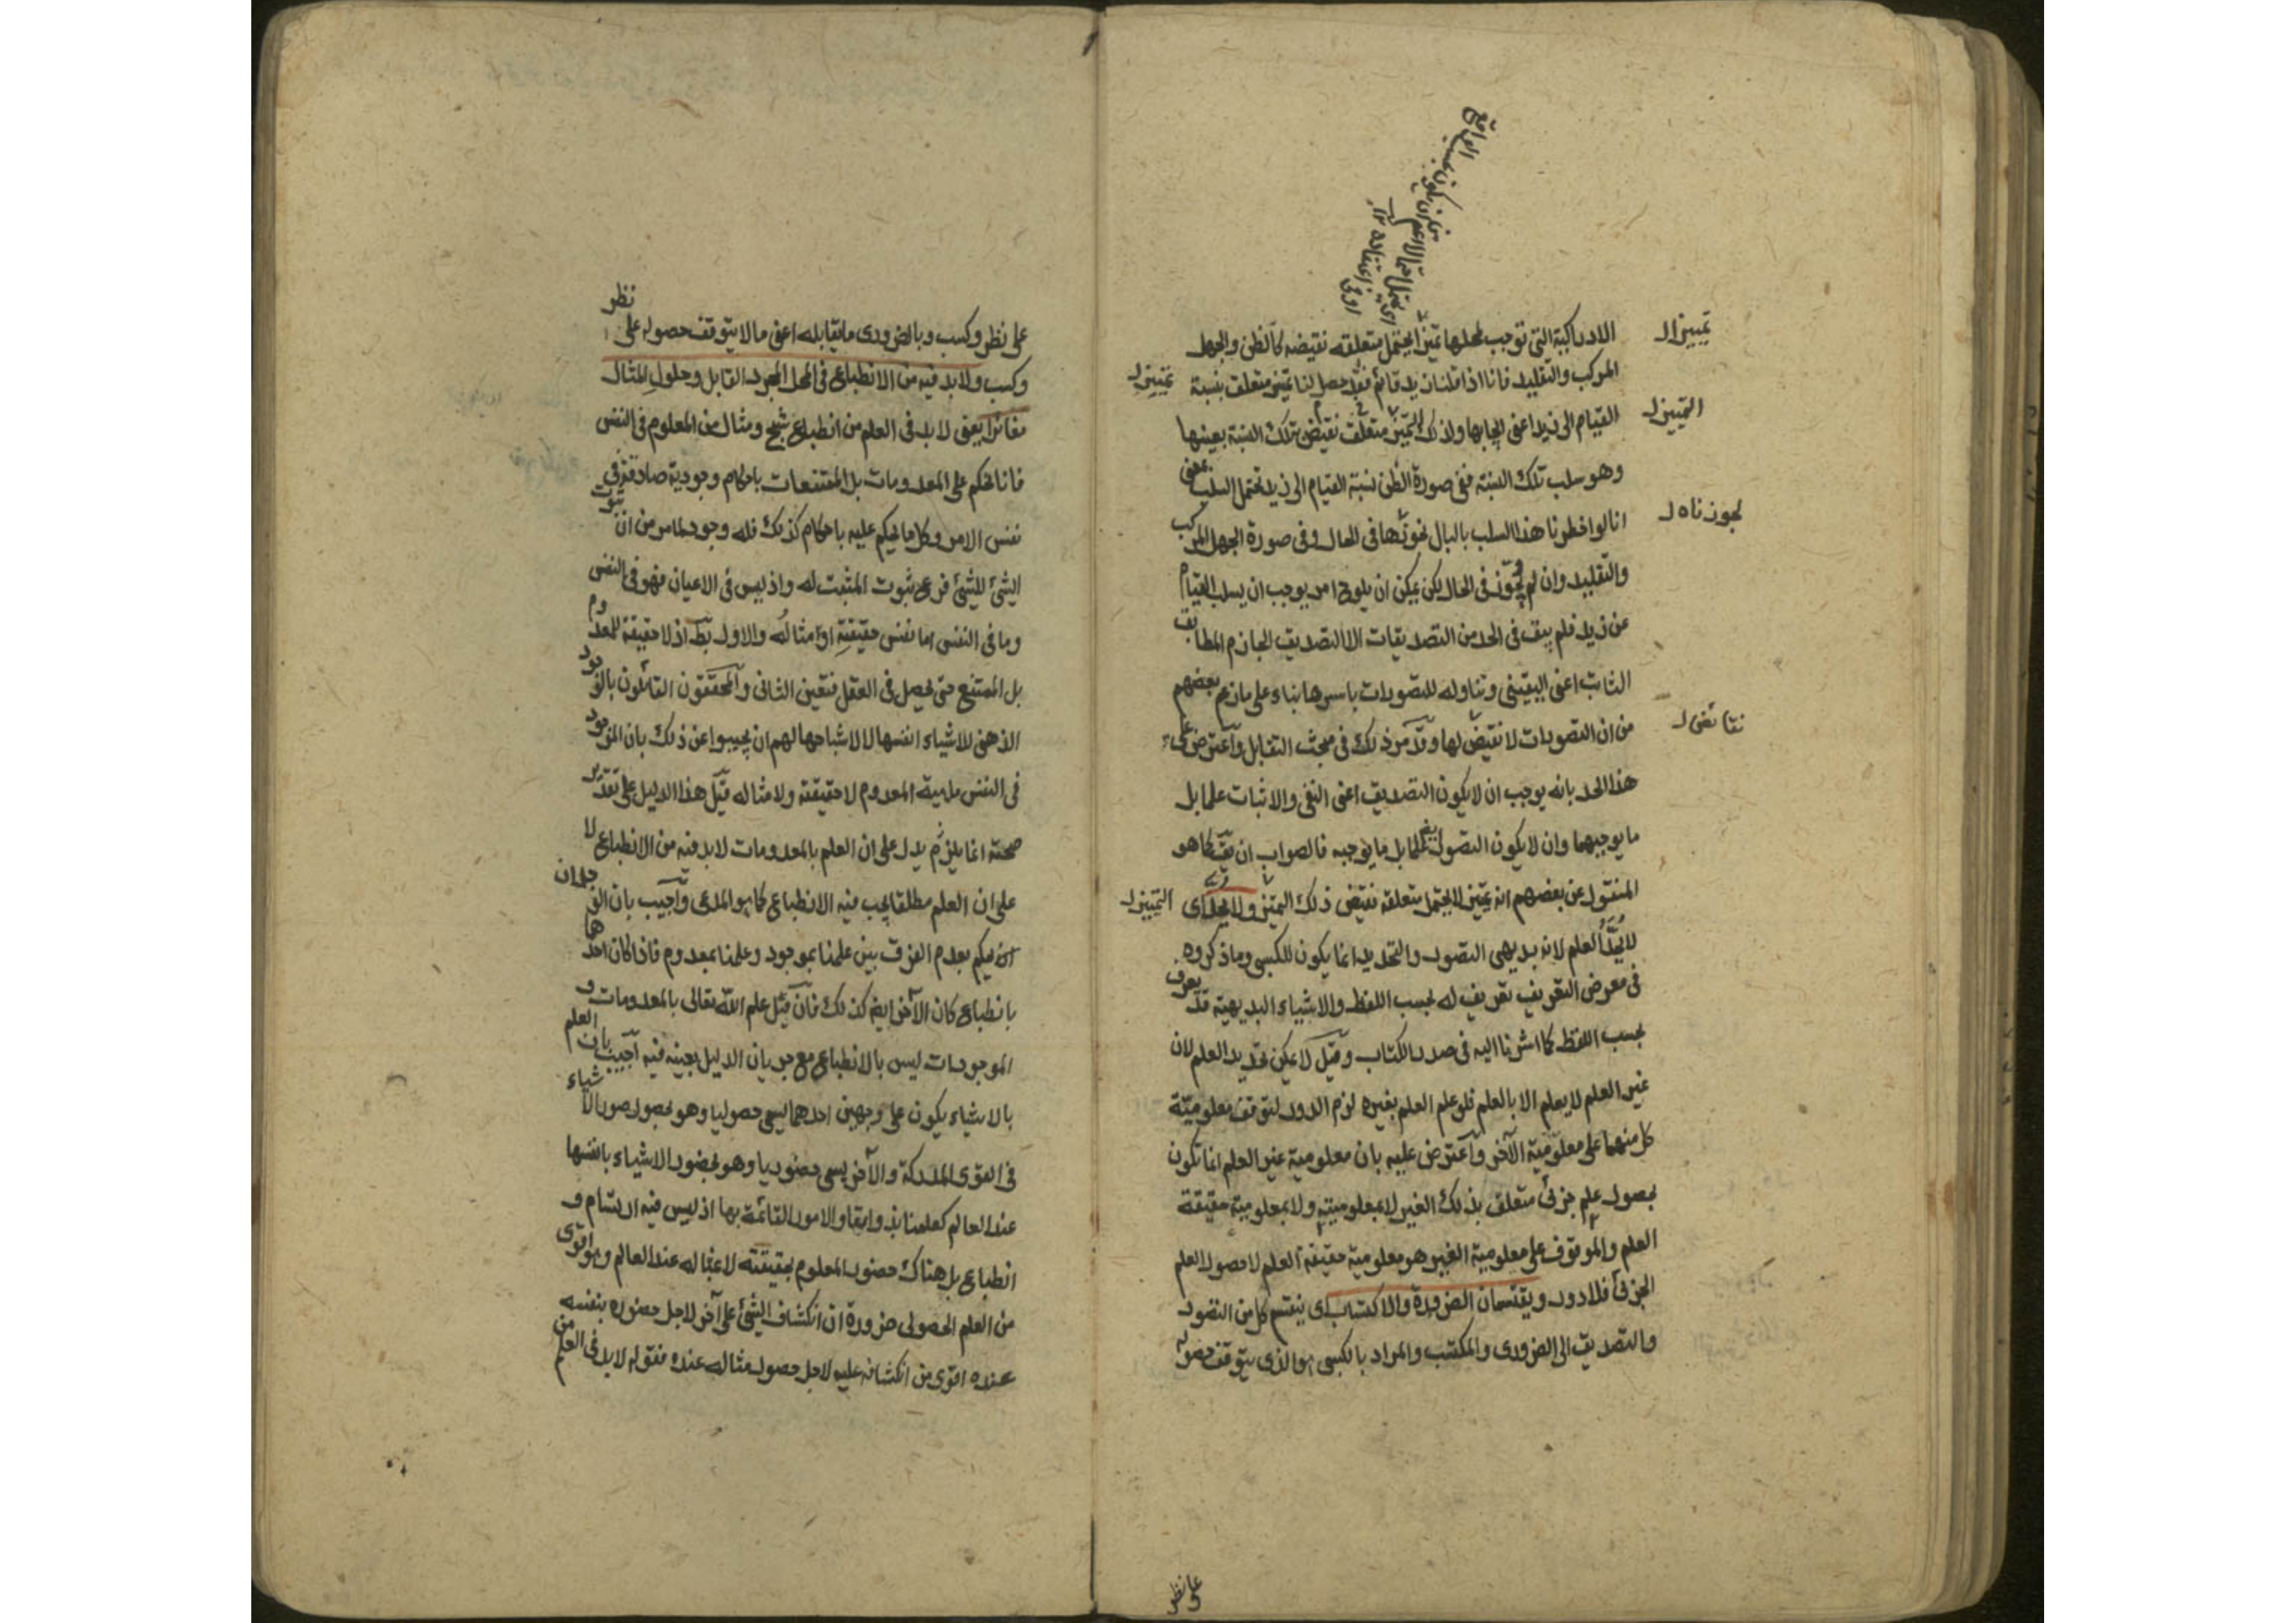 الادراكية التى توجب لمحلها تميّزا لايحتمل متعلقه نقيضه كالظن والجهل
المركب والتقليد فانا اذا قلنا زيد قائم فقد حصل لنا تميّز متعلق بنسبة
القيام الى زيد اعنى ايجابها ولذلك التميّز متعلق نقيض تلك النسبة بعينها
وهو سلب تلك النسبة ففى صورة الظن نسبة القيام الى زيد تحتمل السلب
انا لو اخطرنا هذا السلب بالبال لجوّزها فى الحال وفى صورة الجهل المركب
والتقليد وان لم نجوّز فى الحال لكن يمكن ان يلوح امر يوجب ان يسلب القيام
عن زيد فلم يبق فى الحد من التصديقات الا التصديق الجازم المطابق
الثابت اعنى اليقينى وتناوله للتصورات باسرها بناء على ما زعم بعضهم
من ان التصورات لا نقيض لها وقد مر ذلك فى مبحث التقابل واعترض على
هذا الحد بانه يوجب ان لا يكون التصديق اعنى النفى والاثبات علما بل
ما يوجبهما وان لا يكون التصور ايضا علما بل ما يوجبه فالصواب ان يقّ كما هو
المنقول عن بعضهم انه تميّز لا يحتمل متعلقه نقيض ذلك التميّز ولا يحد اى
لا يُحَدُّ العلم لانه بديهى التصور والتحديد انما يكون للكسبى وما ذكروه
فى معرض التعريف تعريف له بحسب اللفظ والاشياء البديهية قد يعرف
بحسب اللفظ كما اشرنا اليه فى صدر الكتاب وقيل لا يمكن تحديد العلم لان
غير العلم لا يعلم الا بالعلم فلو علم العلم بغيره لزم الدور لتوقف معلوميّة
كل منهما على معلوميّة الآخر واعترض عليه بان معلومية غير العلم انما تكون
بحصول علم جزئى متعلق بذلك الغير لا بمعلوميته ولا بمعلومية حقيقة
العلم والموقوف على معلومية الغير هو معلومية حقيقة العلم لا حصول العلم
الجزئى فلا دور ويقتسمان الضرورة والاكتساب اى ينقسم كل من التصور
والتصديق الى الضرورى والمكتسب والمراد بالكسبى هو الذى يتوقف حصوله
تمييزا ل
تمييز ل
التمييز ل
لجوزناه ل
نقائض ل
التمييز ل
على نظر
على نظر وكسب وبالضرورى ما يقابله اعنى ما لا يتوقف حصوله على نظر
وكسب ولا بد فيه من الانطباع فى المحل المجرد القابل وحلول المثال
مغائرا يعنى لا بد فى العلم من انطباع شبح ومثال من المعلوم فى النفس
فانا نحكم على المعدومات بل الممتنعات باحكام وجودية صادقة فى
نفس الامر وكل ما يحكم عليه باحكام كذلك فله وجود لما مر من ان ثبوت
الشئ للشئ فرع ثبوت المثبت له واذ ليس فى الاعيان فهو فى النفس
وما فى النفس اما نفس حقيقتِهِ او امثالُه والاول بط اذ لا حقيقة للمعدوم
بل الممتنع حتى يحصل فى العقل فتعين الثانى والمحققون القائلون بالوجود
الذهنى للاشياء انفسها لا لاشباحها لهم ان يجيبوا عن ذلك بان الموجود
فى النفس ماهية المعدوم لا حقيقته ولا مثاله قيل هذا الدليل على تقدير
صحته انما يلزم يدل على ان العلم بالمعدومات لا بد فيه من الانطباع لا
على ان العلم مطلقا يجب فيه الانطباع كما هو المدعى واجيب بان الوجدان
يحكم بعدم الفرق بين علمنا بموجود وعلمنا بمعدوم فاذا كان احدها
بانطباع كان الآخر ايضا كذلك فان قيل علم الله تعالى بالمعدومات و
الموجودات ليس بالانطباع مع جريان الدليل بعينه فيه اجيب بان العلم
بالاشياء يكون على وجهين احدهما يسمى حصوليا وهو بحصول صور الاشياء
فى القوى المدركة والآخر يسمى حضوريا وهو بحضور الاشياء بانفسها
عند العالم كعلمنا بذواتنا والامور القائمة بها اذ ليس فيه ارتسام و
انطباع بل هناك حضور المعلوم بحقيقته لا بمثاله عند العالم وهو اقوى
من العلم الحصولى ضرورة ان انكشاف الشئ على آخر لاجل حضوره بنفسه
عنده اقوى من انكشافه عليه لاجل حصول مثاله عنده فقوله لا بد فى العلم من